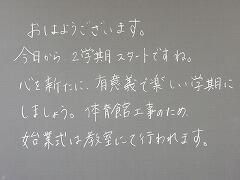 おはようございます。
今日から2学期スタートですね。
心を新たに、有意義で楽しい学期に
しましょう。体育館工事のため、
始業式は教室にて行われます。